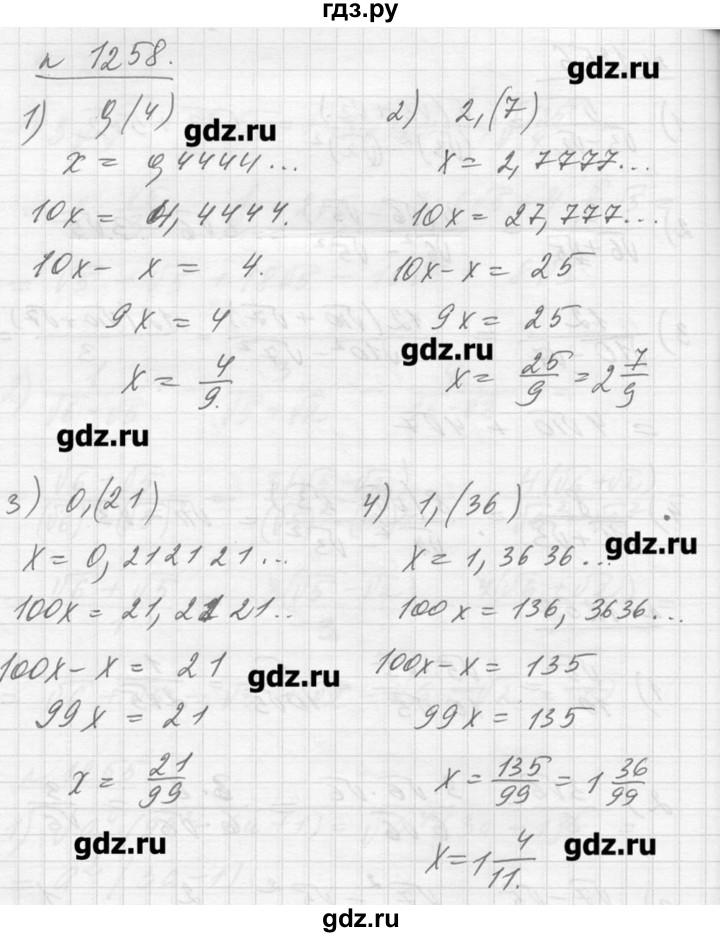 гдз.ру
n 1258.
gdz.ru
1) 0,(4)
gdz.ru
x = 0,4444...
10x = 4,4444.
10x - x = 4.
9x = 4
x = 4/9.
gdz.ru
2) 2,(7)
x = 2,7777...
10x = 27,777...
10x - x = 25
9x = 25
gdz.ru
x = 25/9 = 2 7/9
3) 0,(21)
x = 0,212121...
100x = 21,2121..
100x - x = 21
gdz.ru
99x = 21
x = 21/99
gdz.ru
4) 1,(36)
gdz.ru
x = 1,3636...
100x = 136,3636...
100x - x = 135
99x = 135
x = 135/99 = 1 36/99
x = 1 4/11.
gdz.ru
gdz.ru